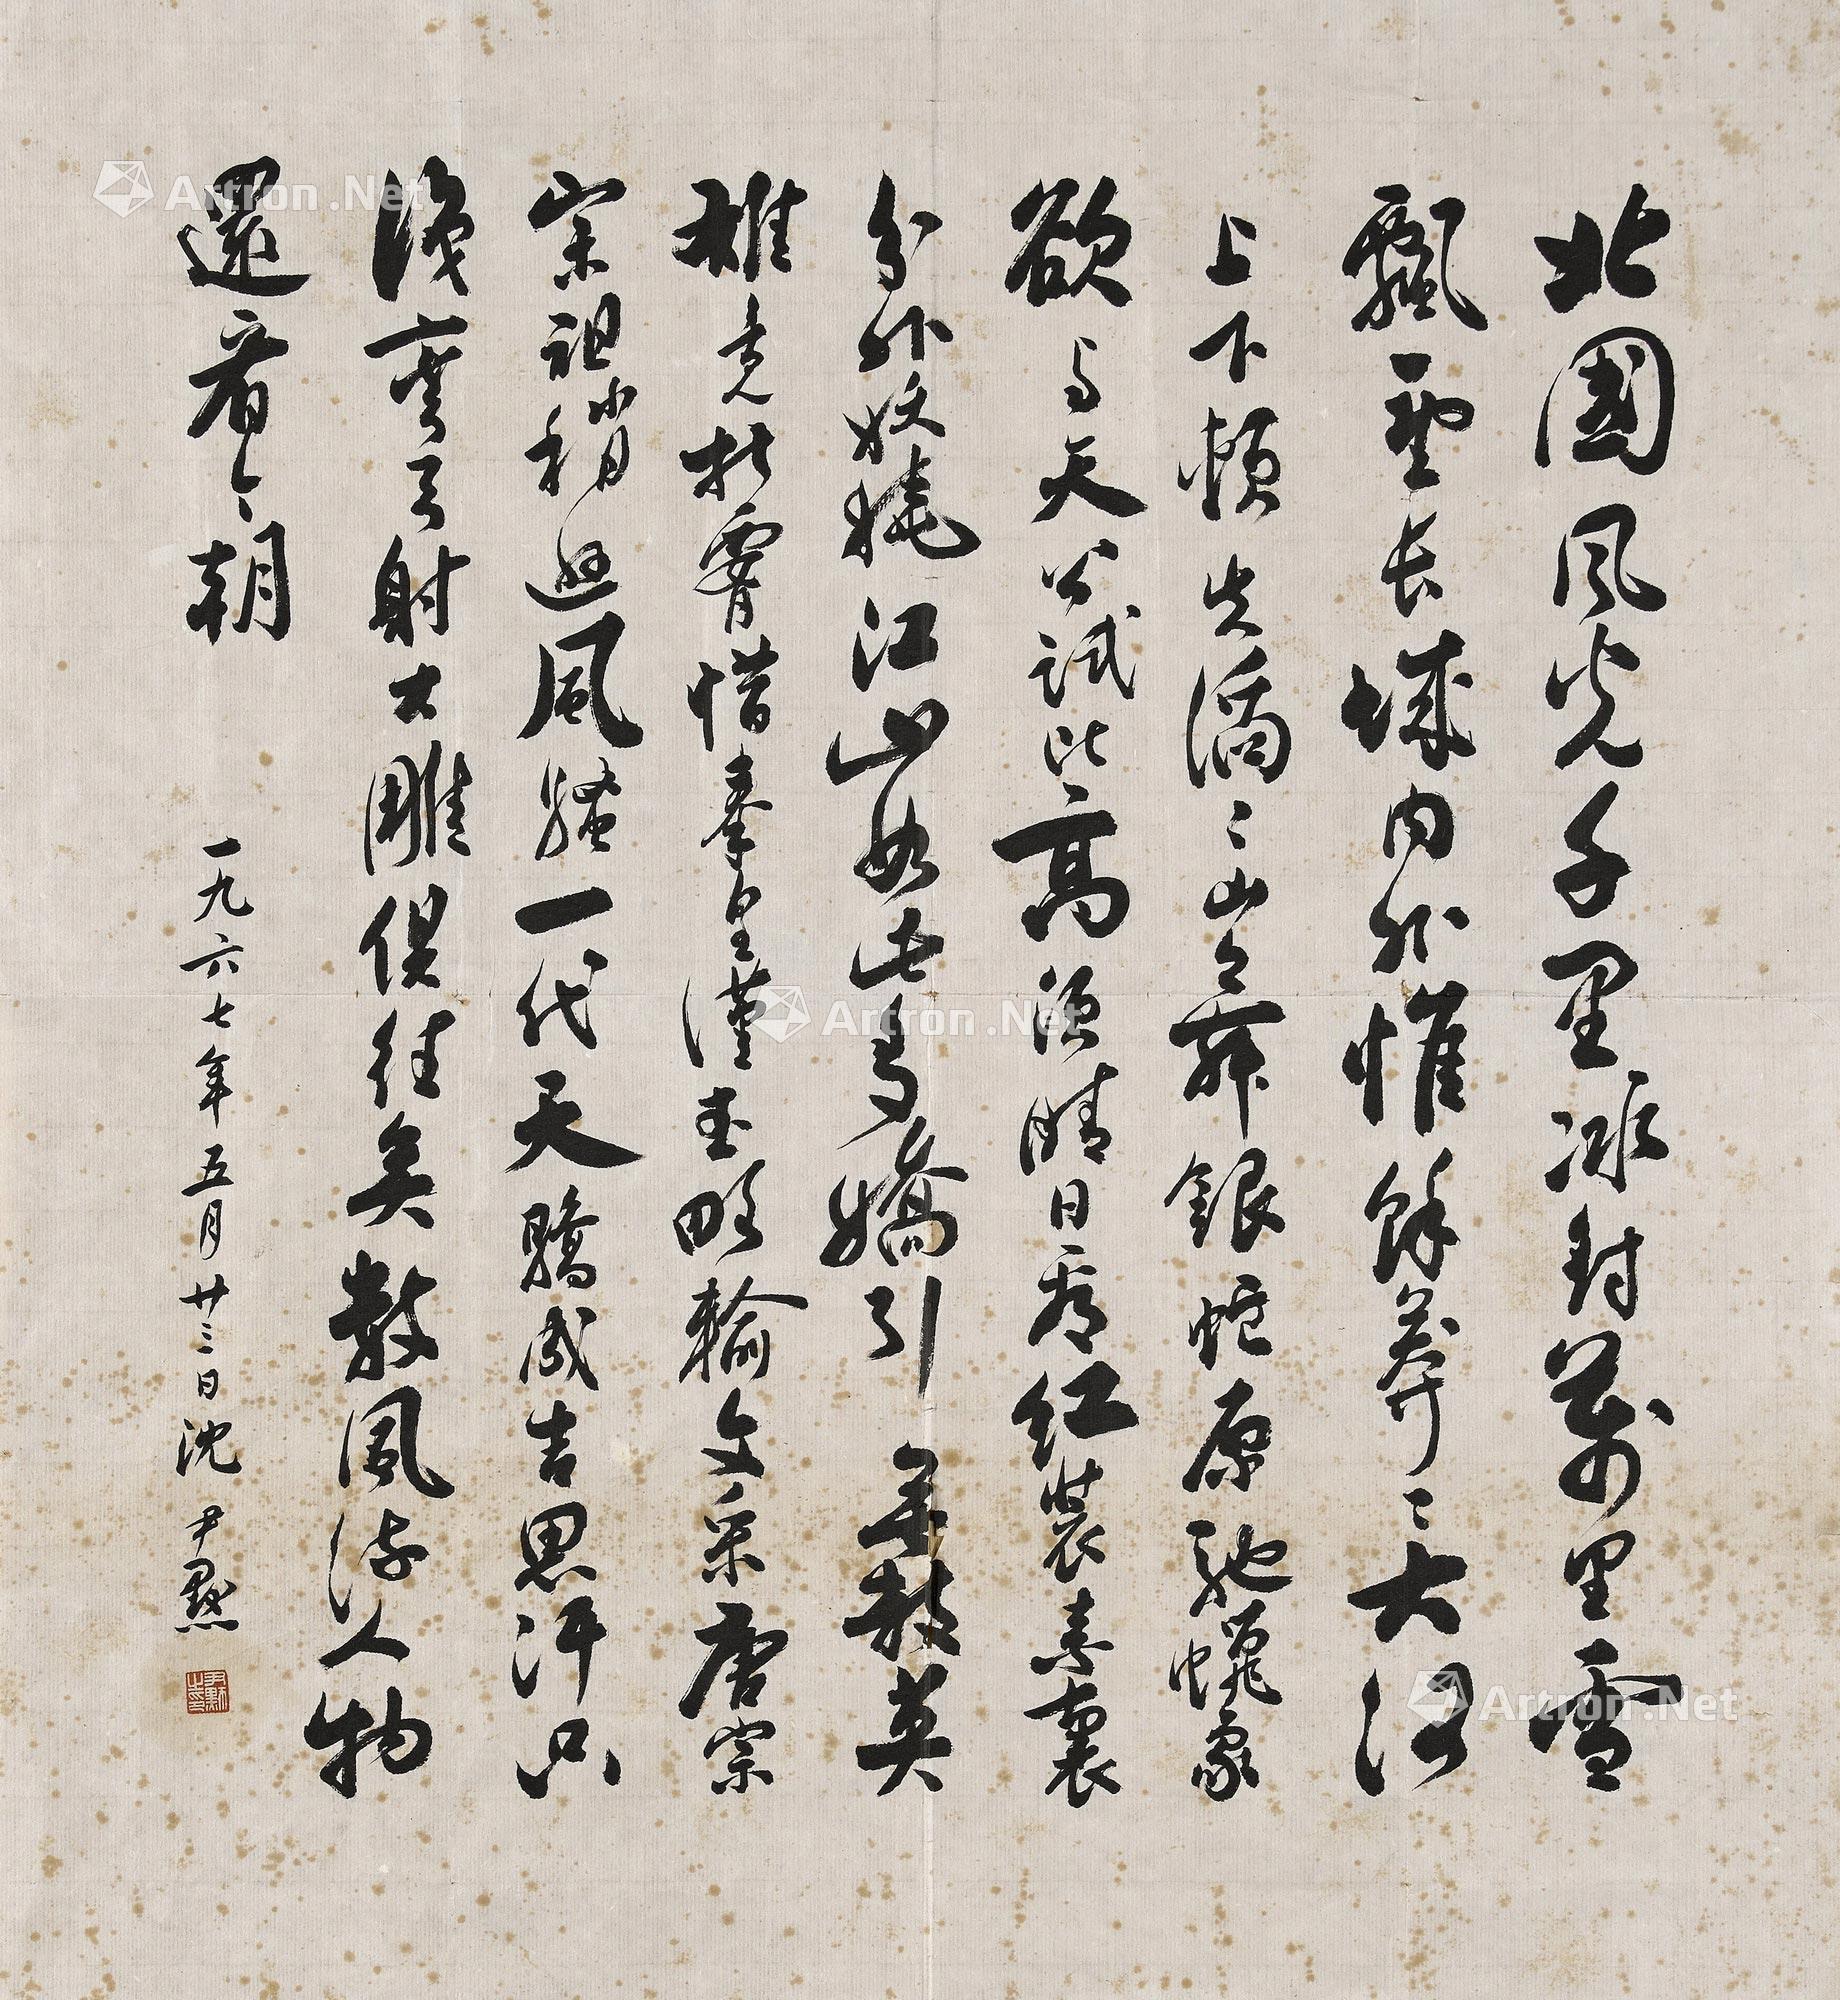 北國風光千里冰封萬里雪
飄望長城內外惟餘莽〻大河
上下頓失滔〻山舞銀蛇原馳蠟象
欲与天公試比高須晴日看紅裝素裹
分外妖嬈江山如此多嬌引無數英
雄竞折腰惜秦皇漢武略輸文采唐宗
宋祖稍遜風騷一代天驕成吉思汗只
識彎弓射大雕俱往矣數風流人物
還看今朝
一九六七年五月廿三日沈尹默
尹默之印
Artron.Net
Artron.Net
Artron.Net